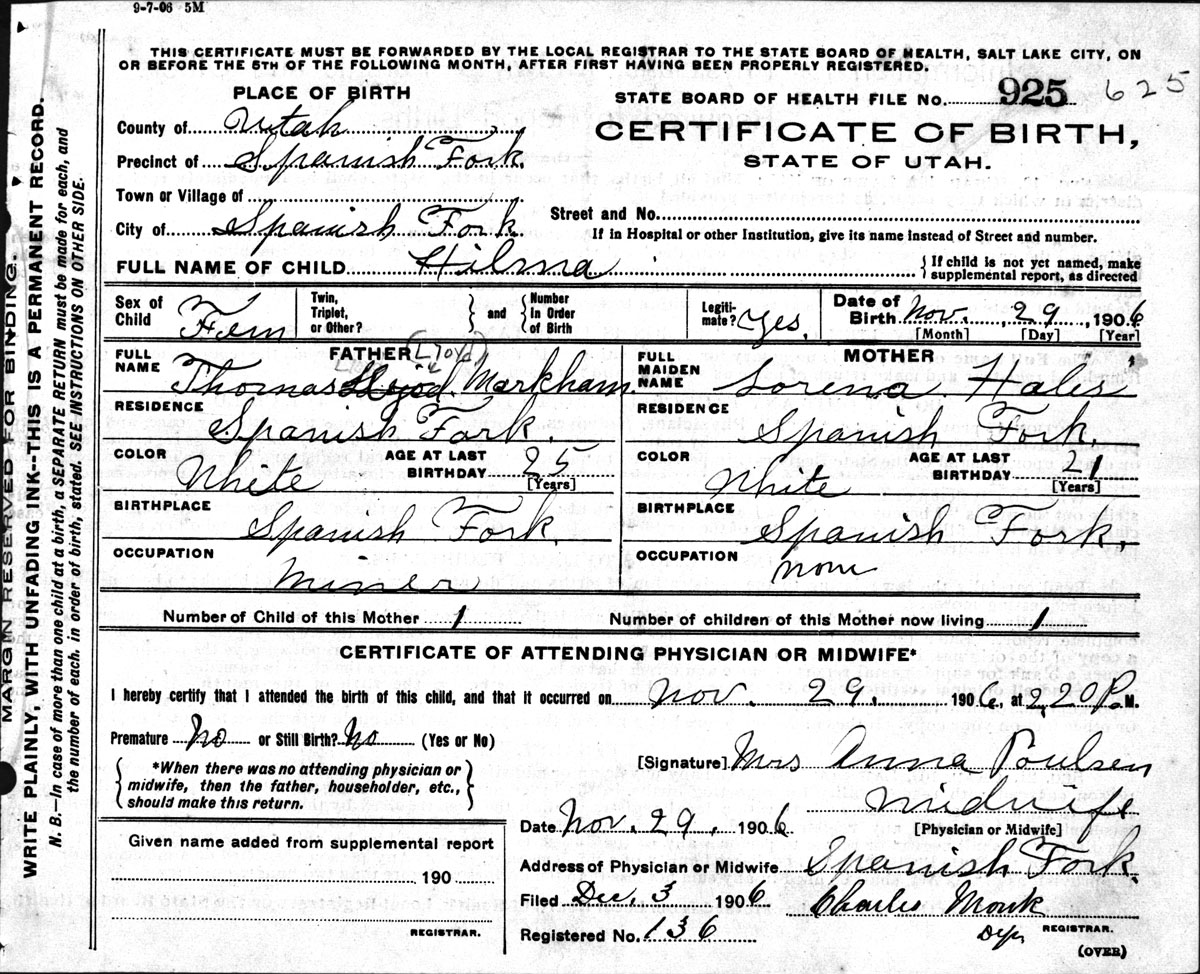 9-7-06 5M
THIS CERTIFICATE MUST BE FORWARDED BY THE LOCAL REGISTRAR TO THE STATE BOARD OF HEALTH, SALT LAKE CITY, ON
OR BEFORE THE 5TH OF THE FOLLOWING MONTH, AFTER FIRST HAVING BEEN PROPERLY REGISTERED.
PLACE OF BIRTH
County of Utah
Precinct of Spanish Fork
Town or Village of
City of Spanish Fork.
STATE BOARD OF HEALTH FILE No. 925 625
CERTIFICATE OF BIRTH,
STATE OF UTAH.
Street and No.
If in Hospital or other Institution, give its name instead of Street and number.
FULL NAME OF CHILD Hilma
If child is not yet named, make
supplemental report, as directed
Sex of
Child Fem
Twin,
Triplet,
or Other?
and
Number
In Order
of Birth
Legiti-
mate? Yes.
Date of
Birth Nov. 29, 1906
[Month] [Day] [Year]
FATHER
FULL
NAME Thomas Lloyd Markham.
RESIDENCE
Spanish Fork.
COLOR
White
AGE AT LAST
BIRTHDAY 25
[Years]
BIRTHPLACE
Spanish Fork.
OCCUPATION
Miner
MOTHER
FULL
MAIDEN
NAME Lorena Hales
RESIDENCE
Spanish Fork.
COLOR
White
AGE AT LAST
BIRTHDAY 21
[Years]
BIRTHPLACE
Spanish Fork.
OCCUPATION
None
Number of Child of this Mother 1
Number of children of this Mother now living 1
CERTIFICATE OF ATTENDING PHYSICIAN OR MIDWIFE*
I hereby certify that I attended the birth of this child, and that it occurred on Nov. 29, 1906, at 2.20 P.M.
Premature No or Still Birth? No (Yes or No)
*When there was no attending physician or
midwife, then the father, householder, etc.,
should make this return.
[Signature] Mrs Anna Poulsen
Midwife
[Physician or Midwife]
Date Nov. 29, 1906
Address of Physician or Midwife Spanish Fork.
Filed Dec. 3 1906
Charles Monk
Dep. REGISTRAR.
Registered No. 136
(OVER)
Given name added from supplemental report
190
REGISTRAR.
MARGIN RESERVED FOR BINDING.
WRITE PLAINLY, WITH UNFADING INK--THIS IS A PERMANENT RECORD.
N. B.—In case of more than one child at a birth, a SEPARATE RETURN must be made for each, and
the number of each. in order of birth, stated. SEE INSTRUCTIONS ON OTHER SIDE.